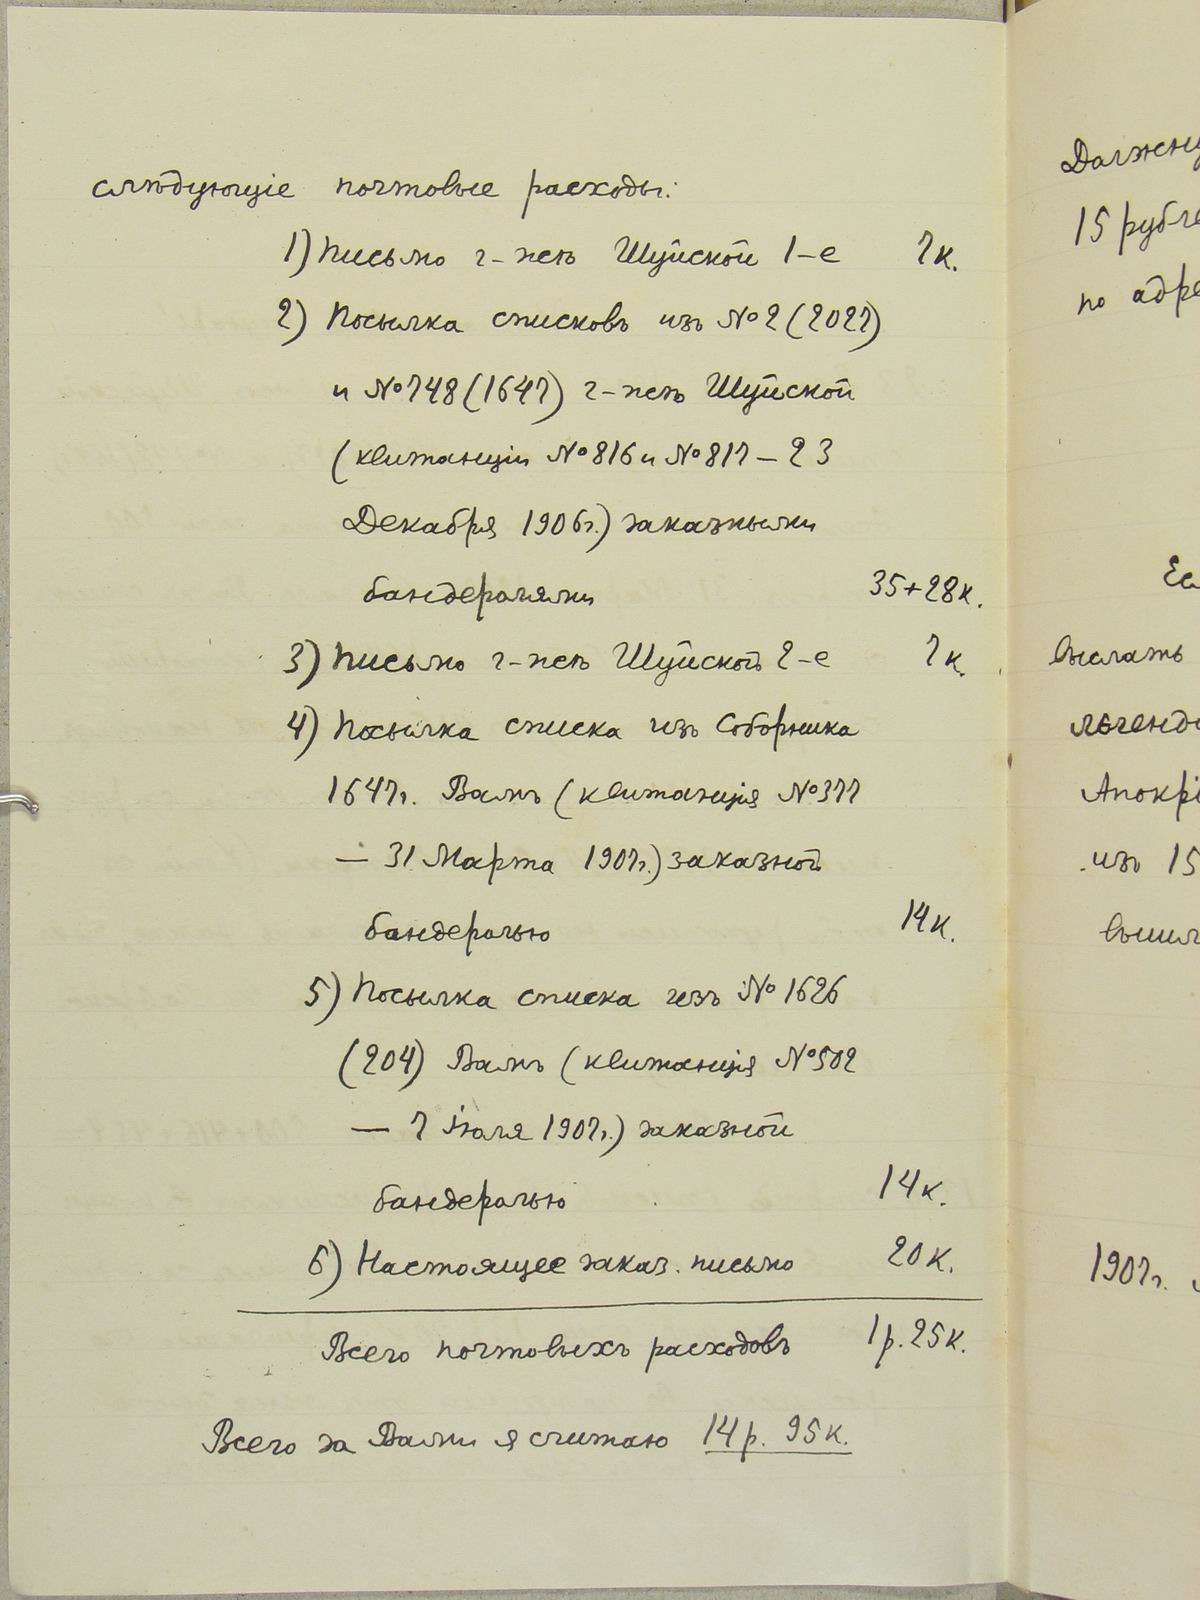 слѣдующіе почтовые расходы:
1) Письмо г-жѣ Шуйской 1-е 7к.
2) Посылка списковъ изъ №2 (2027)
и №748 (1647) г-жѣ Шуйской
(квитанціи №816 и №817 – 23
Декабря 1906г.) заказными
бандеролями 35+28к.
3) Письмо г-жѣ Шуйской 2-е 7к.
4) Посылка списка изъ Соборника
1647г. Вамъ (квитанція №377
— 31 Марта 1907г.) заказной
бандеролью 14к.
5) Посылка списка изъ №1626
(204) Вамъ (квитанція №502
— 7 Іюля 1907г.) заказной
бандеролью 14к.
6) Настоящее заказ. письмо 20к.
Всего почтовыхъ расходовъ 1р. 25к.
Всего за Вами я считаю 14р. 95к.
Должну
15 рубле
по адре
Ес
выслать
легенд
Апокрі
изъ 15
вышл
1907г.